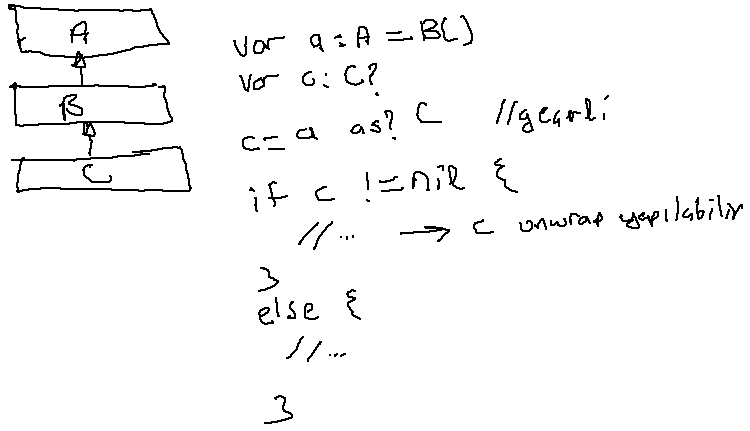 A
B
C
var a: A = B()
var c: C?
c = a as? C //geçerli
if c != nil {
//... → c unwrap yapılabilir
}
else {
//...
}